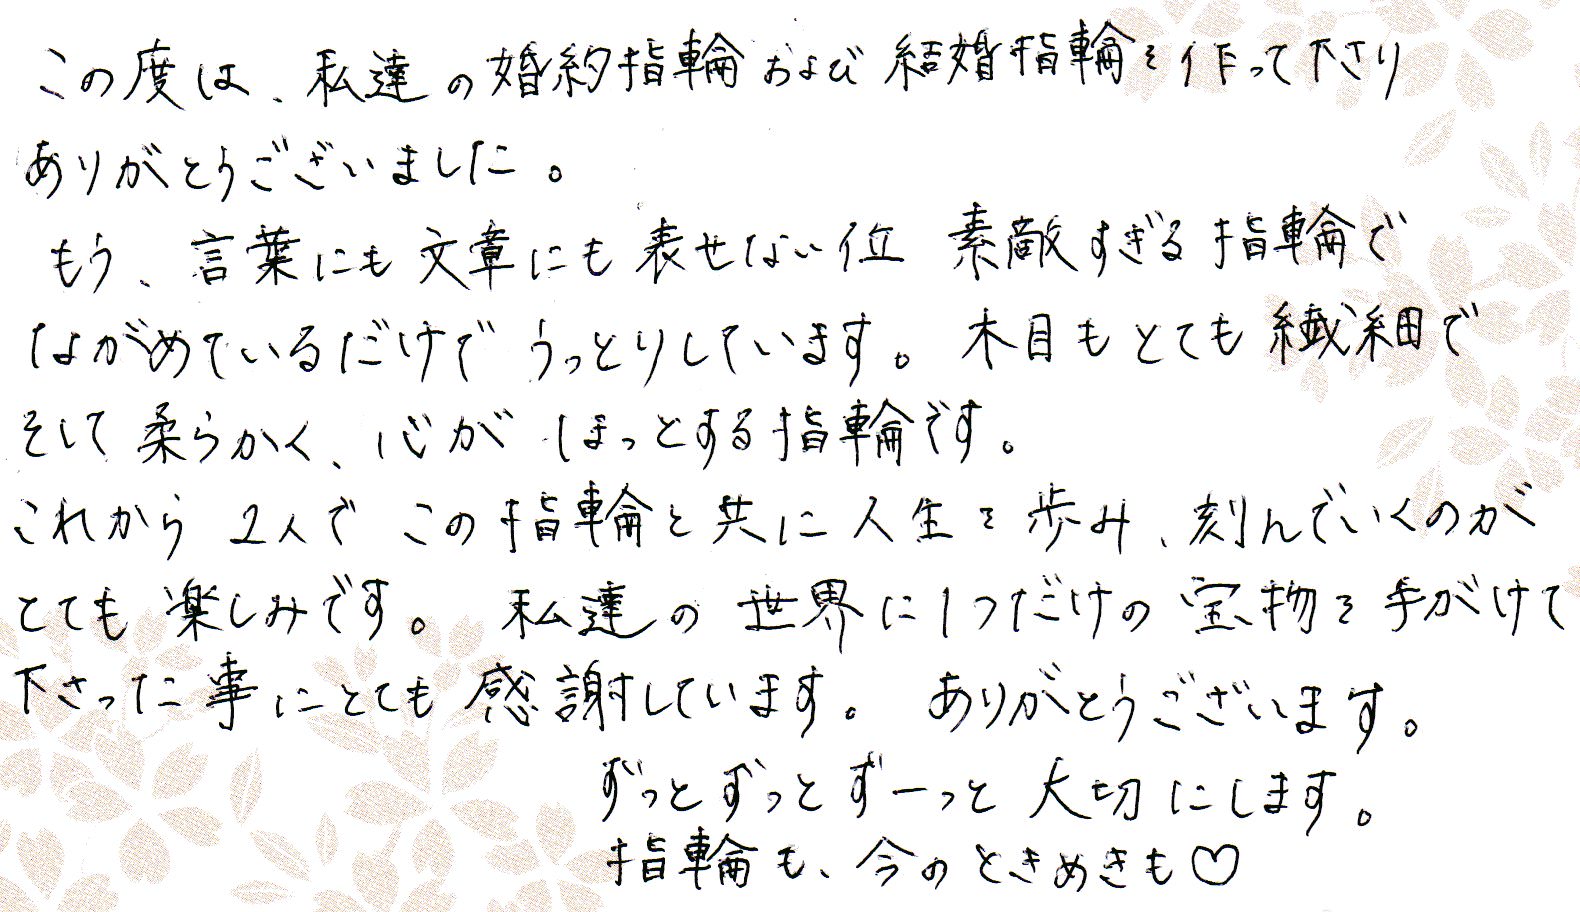 この度は、私達の婚約指輪および結婚指輪を作って下さり
ありがとうございました。
もう、言葉にも文章にも表せない位 素敵すぎる指輪で
ながめているだけでうっとりしています。木目もとても繊細で
そして柔らかく、心がほっとする指輪です。
これから2人でこの指輪と共に人生を歩み、刻んでいくのが
とても楽しみです。私達の世界に1つだけの宝物を手がけて
下さった事にとても感謝しています。ありがとうございます。
ずっとずっとずーっと大切にします。
指輪も、今のときめきも♡